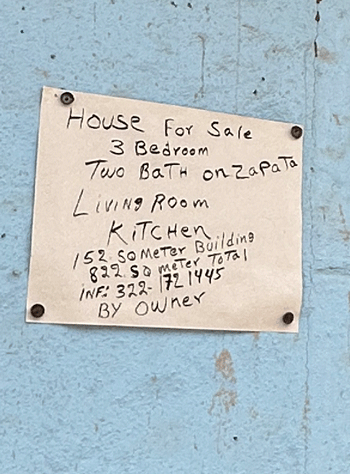 House For Sale
3 Bedroom
Two Bath on Zapata
Living Room
Kitchen
152 SQ Meter Building
822 SQ meter Total
INF: 322-1721445
BY Owner